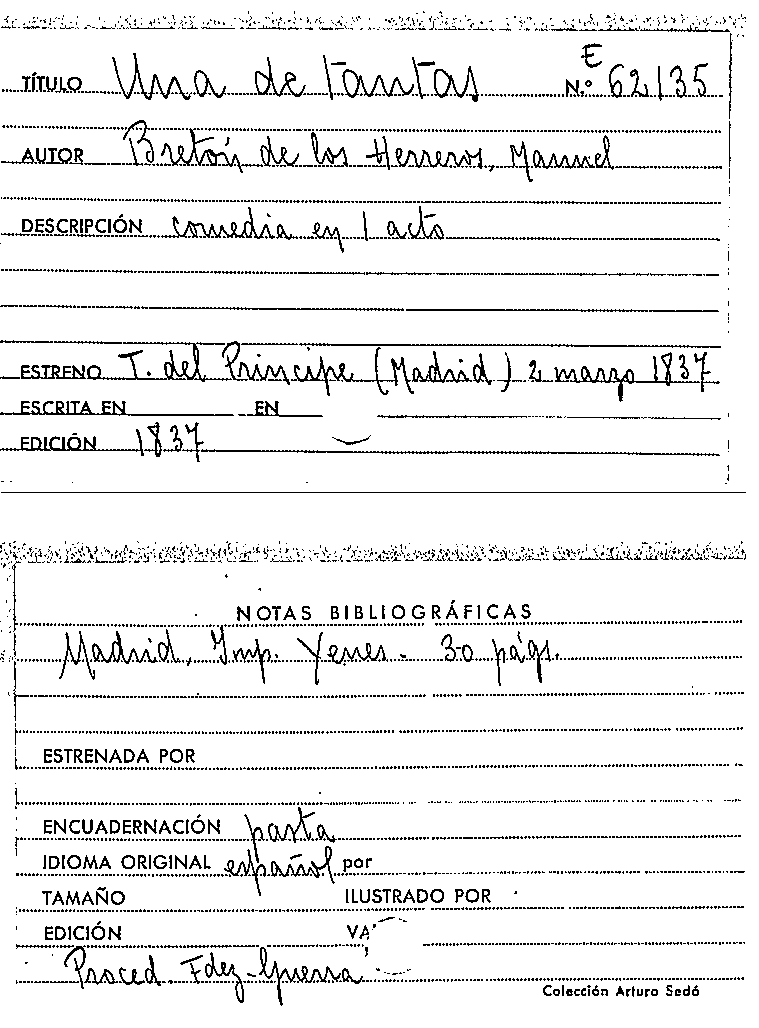 E
TÍTULO Una de tantas N.º 62135
AUTOR Bretón de los Herreros, Manuel
DESCRIPCIÓN comedia en 1 acto
ESTRENO T. del Príncipe (Madrid) 2 marzo 1837
ESCRITA EN EN
EDICIÓN 1837
NOTAS BIBLIOGRÁFICAS
Madrid, Imp. Yenes. 30 págs.
ESTRENADA POR
ENCUADERNACIÓN pasta
IDIOMA ORIGINAL español por
TAMAÑO ILUSTRADO POR
EDICIÓN
Proced. Fdez-Guerra
Colección Arturo Sedó